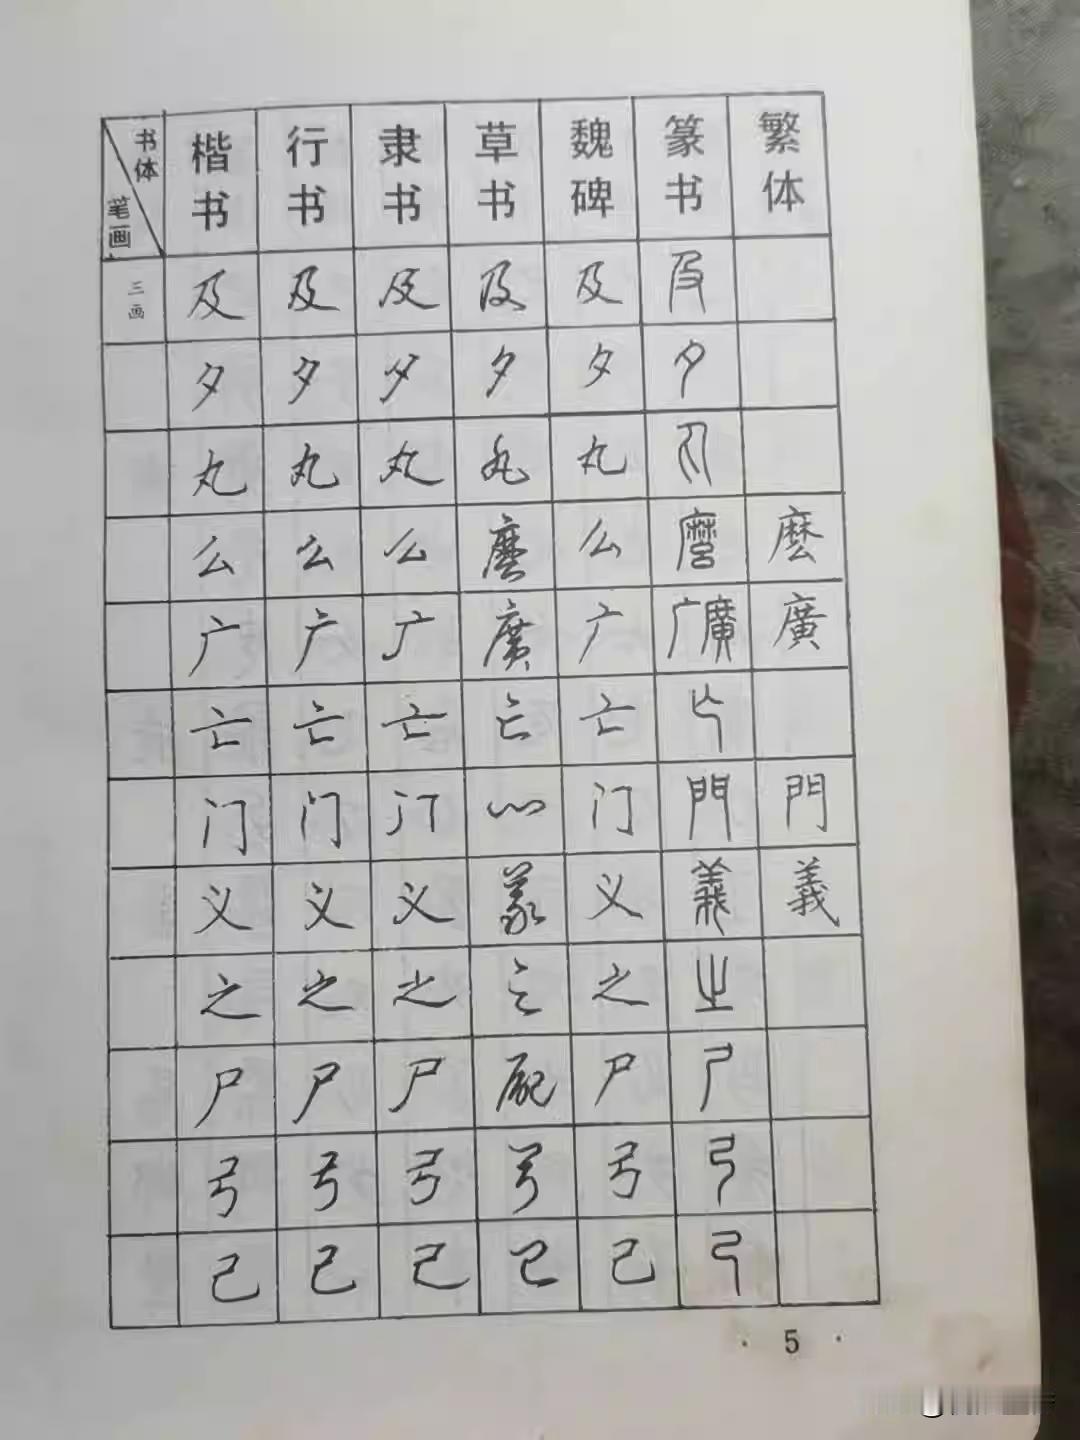 书体 笔画 楷书 行书 隶书 草书 魏碑 篆书 繁体
三画 及 及 及 及 及 及
夕 夕 夕 夕 夕 夕
丸 丸 丸 丸 丸 丸
么 么 么 麼 么 麼 麽
广 广 广 廣 广 广廣 廣
亡 亡 亡 亡 亡 亡
门 门 门 门 门 門 門
义 义 义 義 义 義 義
之 之 之 之 之 之
尸 尸 尸 屍 尸 尸
弓 弓 弓 弓 弓 弓
己 己 己 己 己 己
· 5 ·